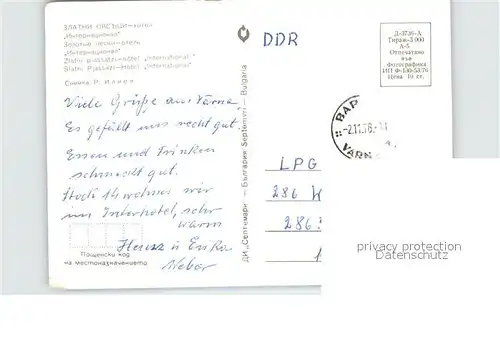 ЗЛАТНИ ПЯСЪЦИ — хотел
„Интернационал“
Золотые пески — отель
„Интернационал“
Zlatni piassatzi — hôtel „International“
Slatni Pjassazi — Hotel „International“
Снимка Р.
Viele Grüße aus Varna.
Es gefällt uns recht gut.
Essen und Trinken
schmeckt gut.
14 wohnen wir
im Interhotel, sehr
warm
Heinz u Erika
Weber
Пощенски код
на местоназначението
ДИ „Септември“ — България Septemvri — Bulgaria
DDR
Д-3736-А
Тираж 5 000
А-5
Отпечатано
във
Фотографика
Цена 10 ст.
ВАР
-2.11.76
VARN
LPG
286 W
286
privacy protection
Datenschutz